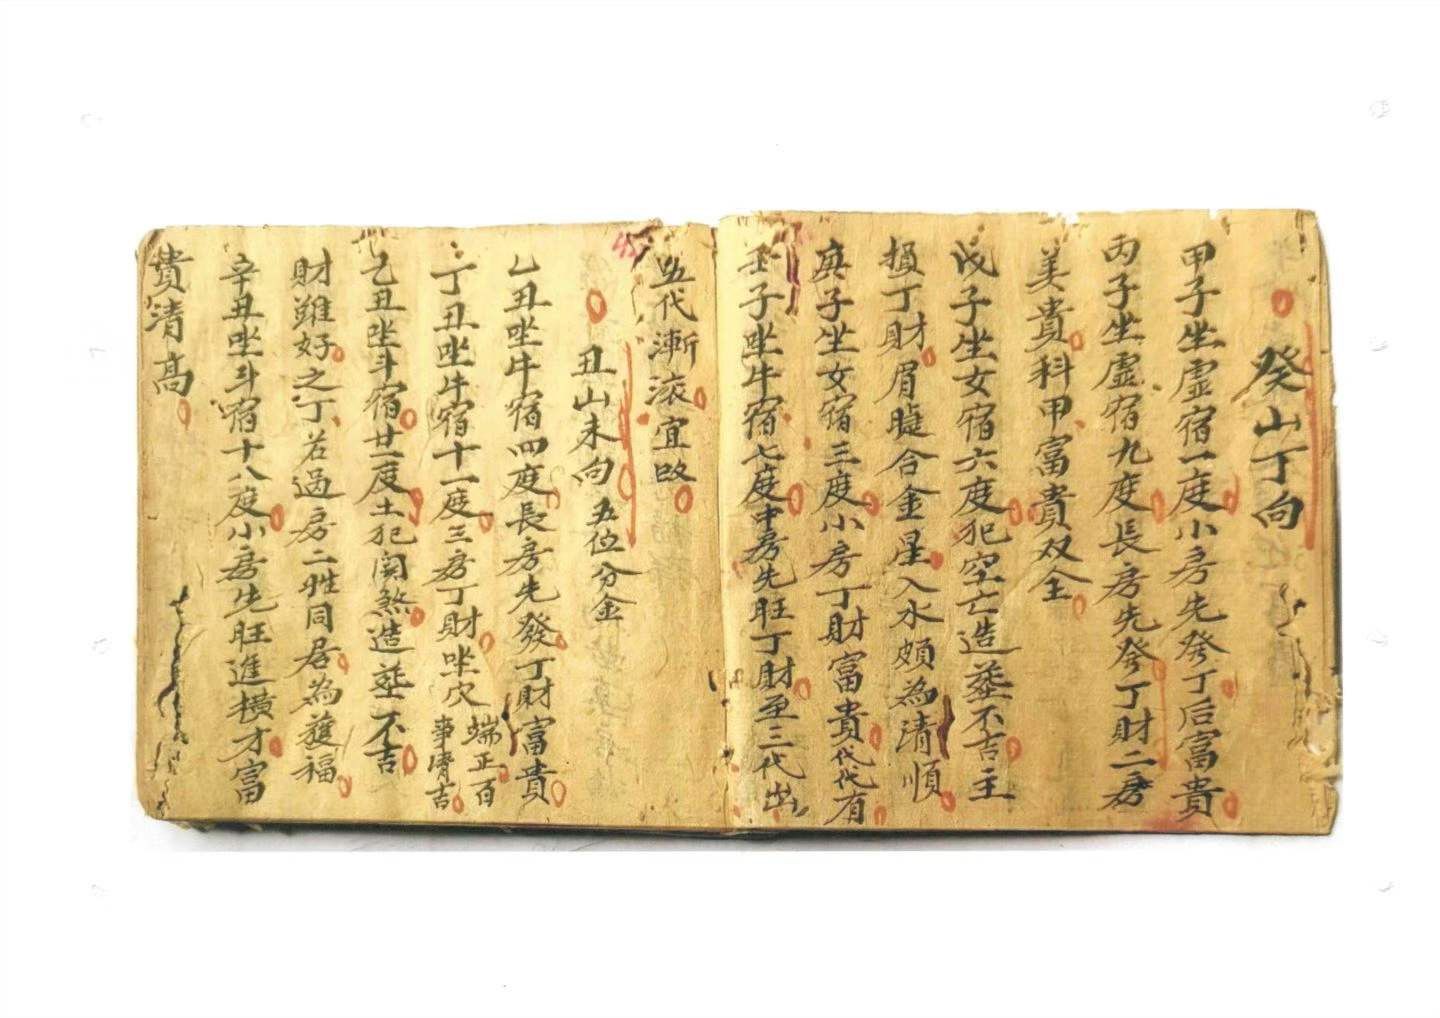 癸山丁向
甲子坐虛宿一度小房先發丁后富貴
丙子坐虛宿九度長房先發丁財二房
美貴科甲富貴双全
戊子坐女宿六度犯空亡造塟不吉主
損丁財眉䁾合金星入水頗為清順
庚子坐女宿三度小房丁財富貴代代有
壬子坐牛宿七度中房先旺丁財至三代出
五代漸滾宜改
丑山未向 五位分金
乙丑坐牛宿四度長房先發丁財富貴
丁丑坐牛宿十一度三房丁財坐穴端正百事済吉
乙丑坐斗宿廿一度土犯関煞造塟不吉
財雖好之丁若過房二姓同居為獲福
辛丑坐斗宿十八度小房先旺進横才富
貴清高